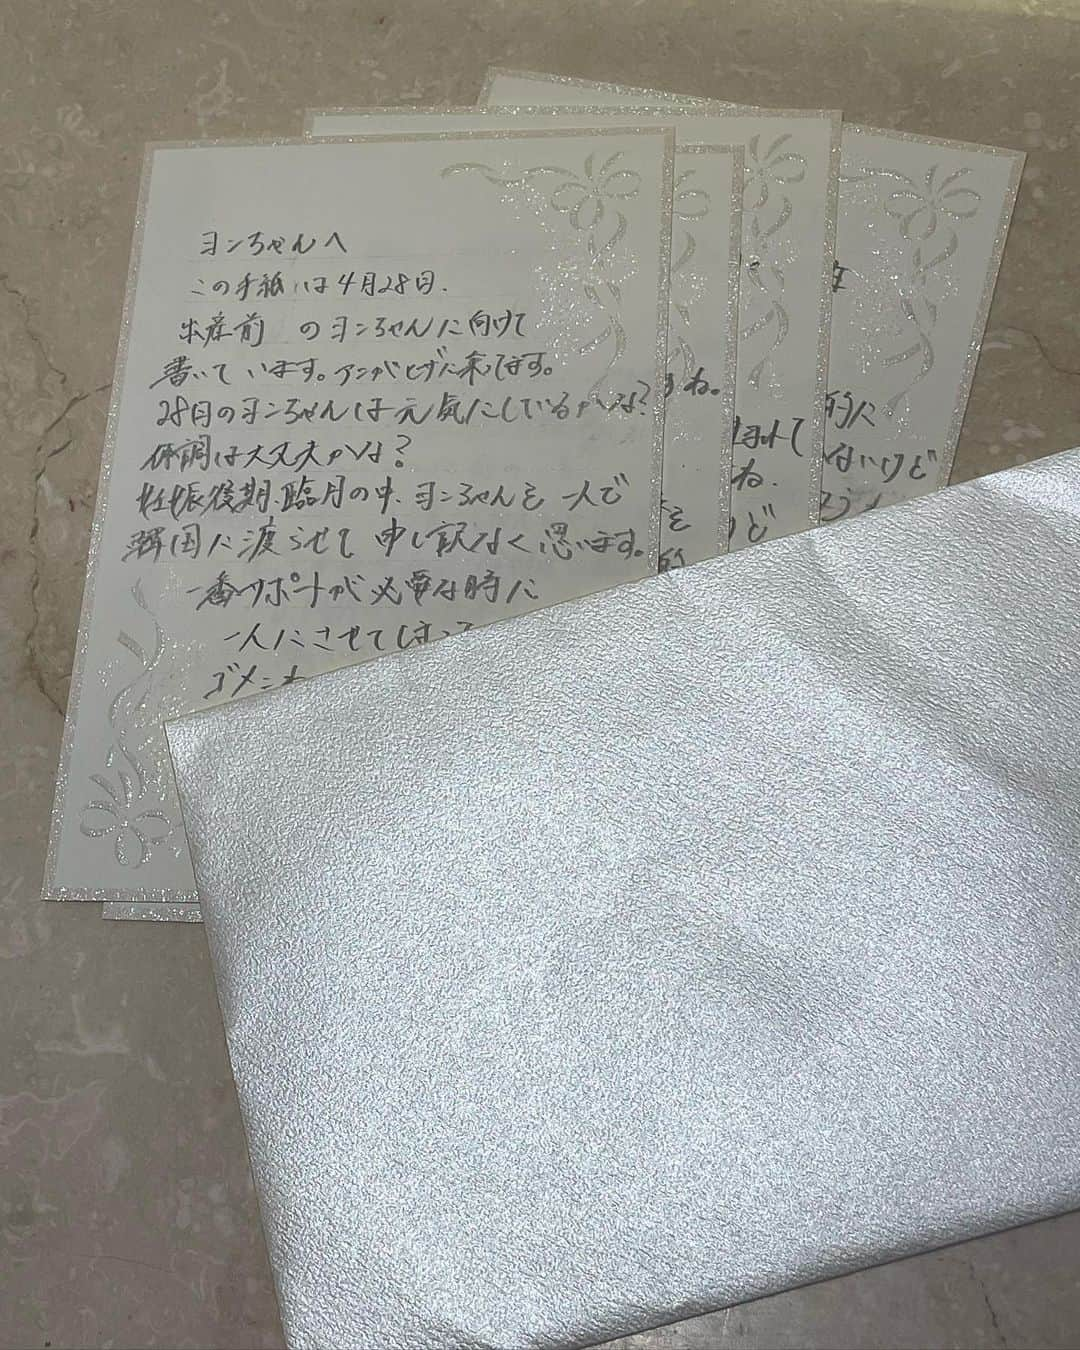 ヨンちゃんへ
この手紙は4月28日.
出産前 のヨンちゃんに向けて
書いています。アンがヒザに乗ってます。
28日のヨンちゃんは元気にしているかな?
体調は大丈夫かな?
妊娠後期、臨月の中、ヨンちゃんを一人で
韓国に渡らせて申し訳なく思います。
一番サポートが必要な時に
一人にさせてしまって
ゴメンね
ね。
ね.
けど
的に
ないけど